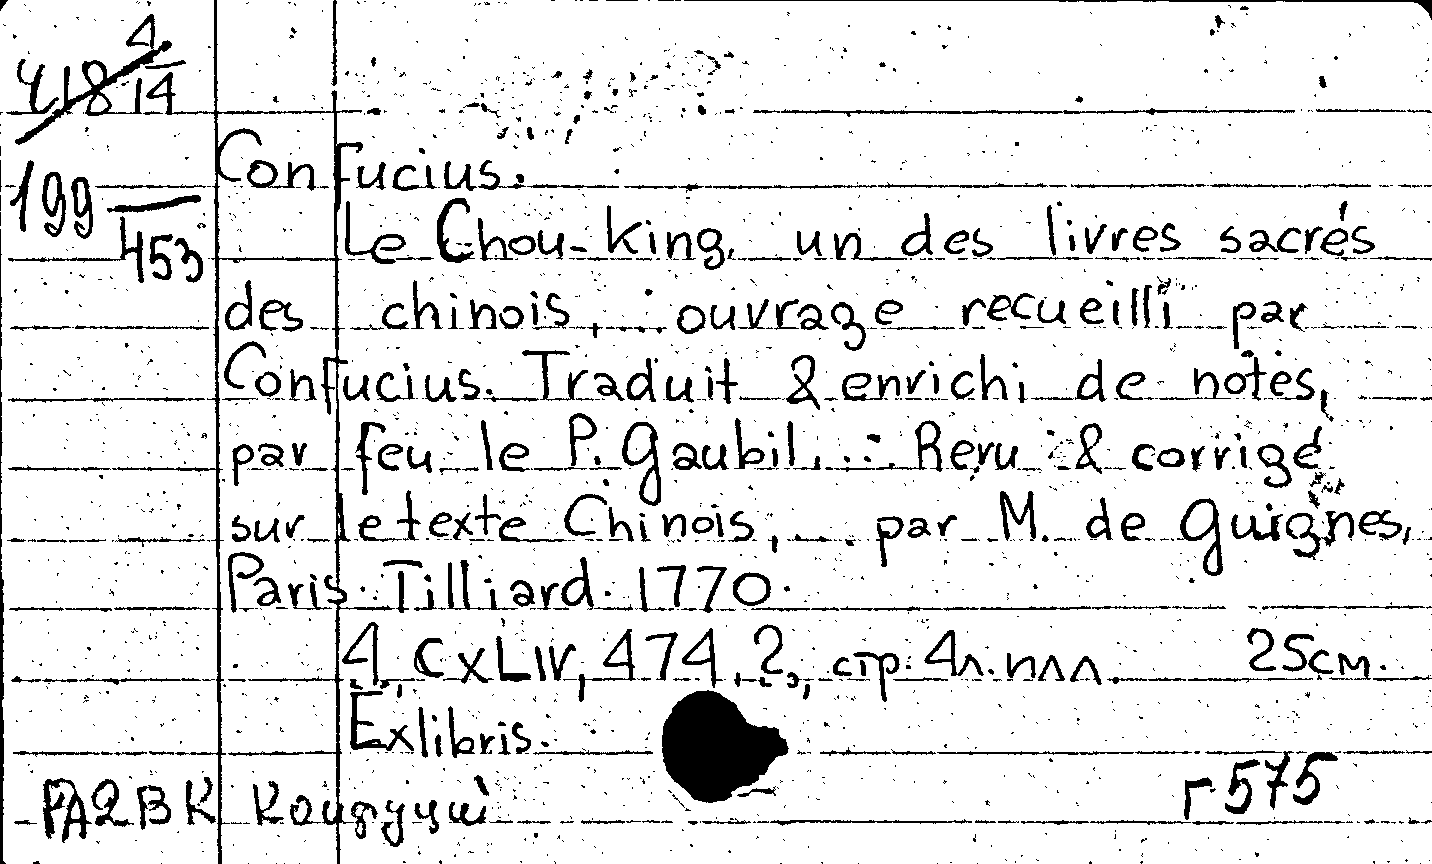 418 4/14
Confucius.
199 /453
Le Chou-king, un des livres sacrés
des chinois, ... ouvrage recueilli par
Confucius. Traduit & enrichi de notes,
par feu le P. Gaubil, ... Revu & corrigé
sur le texte Chinois, ... par M. de Guignes,
Paris. Tilliard. 1770.
4, CXLIV, 474, 2, стр. 4л. илл. 25см.
Exlibris.
г 575
РА2ВК Конфуций